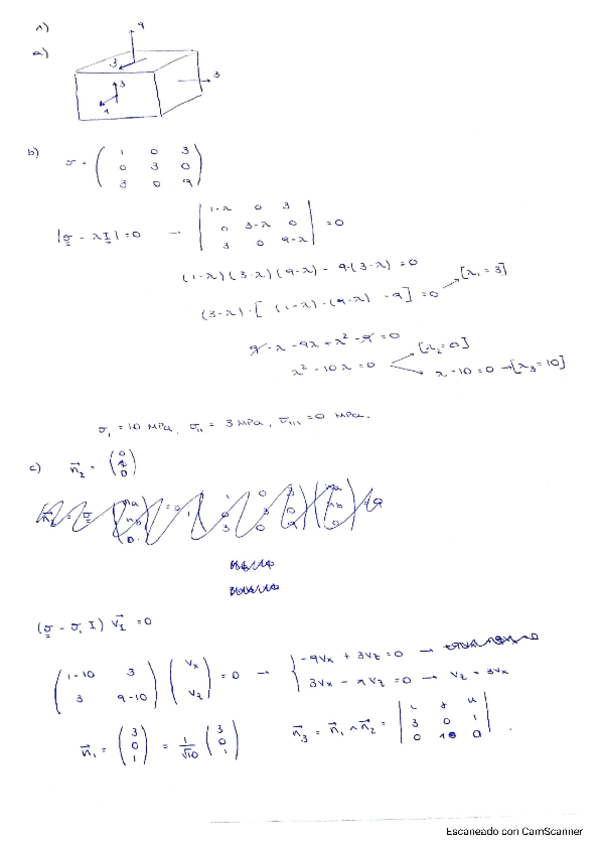 1)
a)
9
3
3
3
1
b)
σ = ( 1 0 3
0 3 0
3 0 9 )
|σ - λI| = 0 → | 1-λ 0 3
0 3-λ 0
3 0 9-λ | = 0
(1-λ)(3-λ)(9-λ) - 9·(3-λ) = 0
(3-λ)·[ (1-λ)·(9-λ) - 9 ] = 0 [λ₁ = 3]
9 - λ - 9λ + λ² - 9 = 0
λ² - 10λ = 0 [λ₂ = 0]
λ - 10 = 0 → [λ₃ = 10]
σI = 10 MPa, σII = 3 MPa, σIII = 0 MPa.
c) n₂ = ( 0
0 )
(σ - σI I) vI = 0
( 1-10 3
3 9-10 ) ( Vx
Vz ) = 0 → { -9Vx + 3Vz = 0 →
3Vx - Vz = 0 → Vz = 3Vx
n₁ = ( 3
0
1 ) = 1/√10 ( 3
0
1 )
n₃ = n₁ ∧ n₂ = | i j k
3 0 1
0 0 |
Escaneado con CamScanner